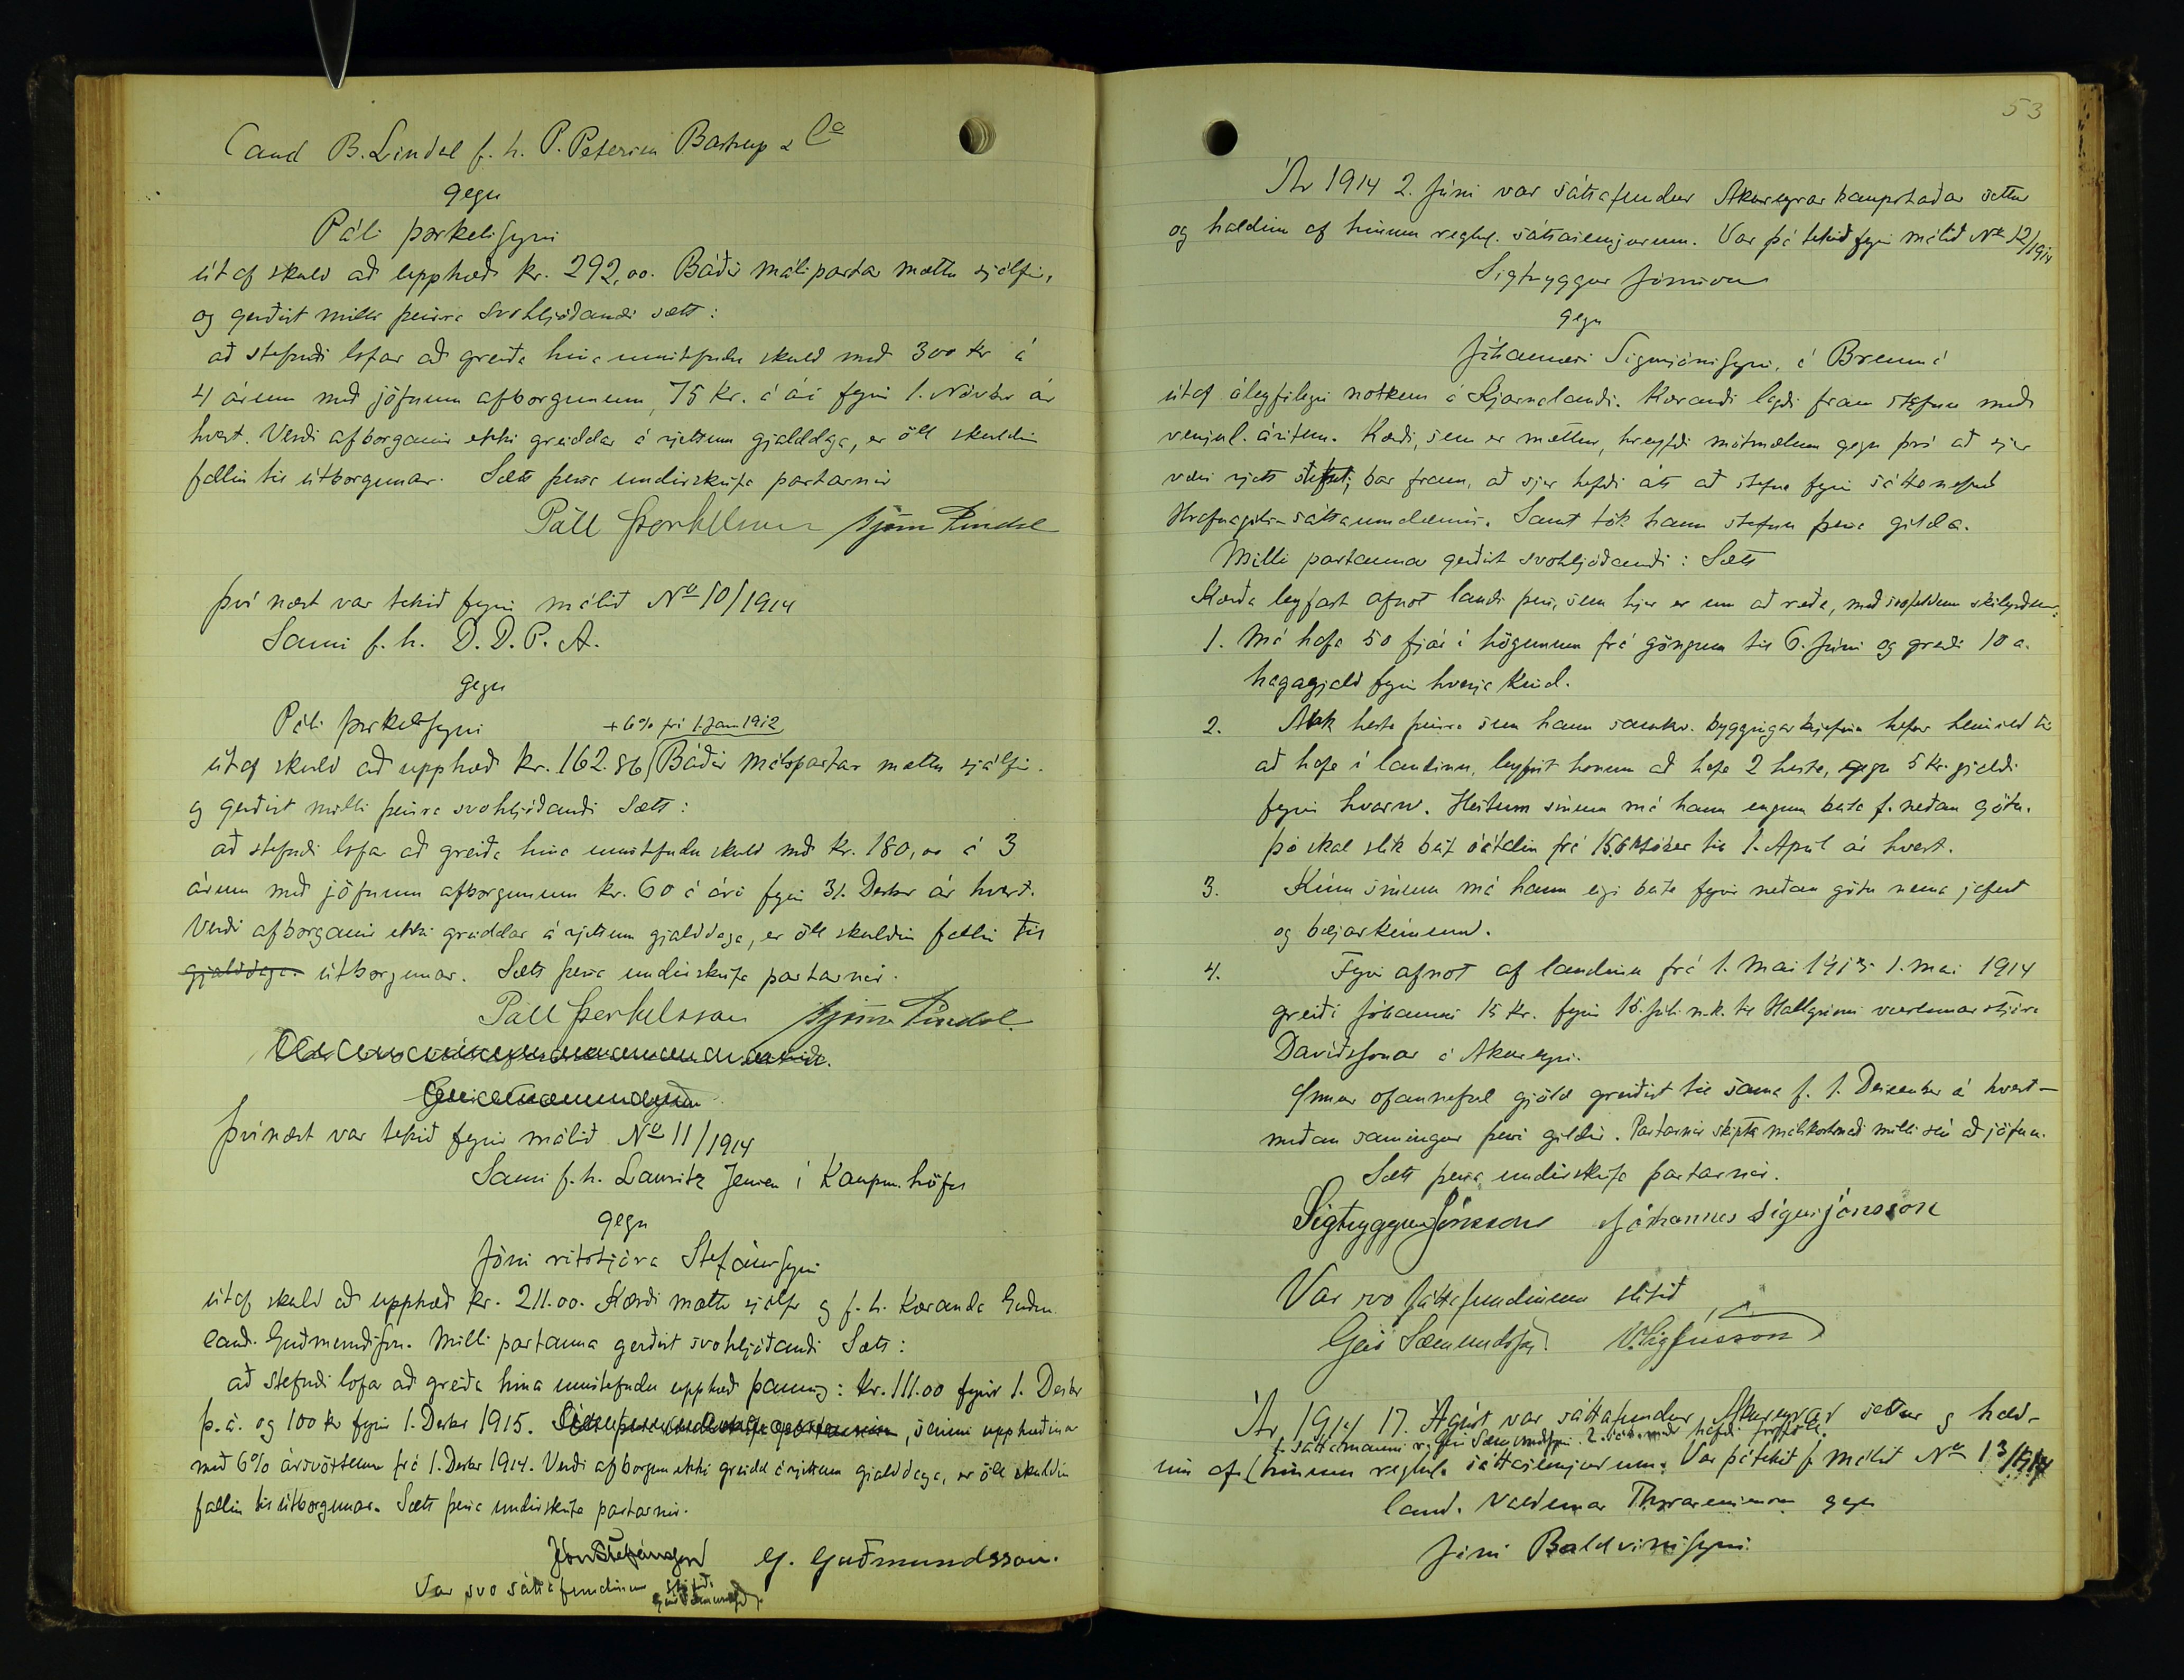 Cand B. Líndal f. h. P. Petersen Bastrup & Co
gegn
Páli Þorkelssyni
út af skuld að upphæð kr. 292,00. Báðir málspartar mættu sjálfir,
og gerðist milli þeirra svohljóðandi sætt:
að stefndi lofar að greiða hina umstefndu skuld með 300 kr á
4 árum með jöfnum afborgunum, 75 kr. á ári fyrir 1. Nóvbr ár
hvert. Verði afborganir ekki greiddar á rjettum gjalddaga, er öll skuldin
fallin til útborgunar. Sætt þessa undirskrifa partarnir
Páll Þorkelsson Björn Líndal
Því næst var tekið fyrir málið No 10/1914
Sami f. h. D. D. P. A.
gegn
Páli Þorkelssyni
+ 6% frá 1. Jan 1912
út af skuld að upphæð kr. 162.86 Báðir málspartar mættu sjálfir.
og gerðist milli þeirra svohljóðandi Sætt:
að stefndi lofar að greiða hina umstefndu skuld með kr. 180,00 á 3
árum með jöfnum afborgunum kr. 60 á ári fyrir 31. Desbr ár hvert.
Verði afborganir ekki greiddar á rjettum gjalddaga, er öll skuldin fallin til
gjalddaga útborgunar. Sætt þessa undirskrifa partarnir.
Páll Þorkelsson Björn Líndal
Því næst var tekið fyrir málið No 11/1914
Sami f. h. Lauritz Jensen í Kaupm.höfn
gegn
Jóni ritstjóra Stefánssyni
út af skuld að upphæð kr. 211.00. Kærði mætti sjálfur og f. h. Kæranda Guðm.
cand. Guðmundsson. Milli partanna gerðist svohljóðandi Sætt:
að stefndi lofar að greiða hina umstefndu upphæð þannig: kr. 111.00 fyrir 1. Desbr
þ. á. og 100 kr fyrir 1. Desbr 1915. , seinni upphæðina
með 6% ársvöxtum frá 1. Desbr 1914. Verði afborgun ekki greidd á rjettum gjalddaga, er öll skuldin
fallin til útborgunar. Sætt þessa undirskrifa partarnir.
Jón Stefánsson G. Guðmundsson.
Var svo sáttafundinum slitið.
Geir Sæmundsson
53
Ár 1914 2. Júni var sáttafundur Akureyrar kaupstaðar settur
og haldinn af hinum reglul. sáttasemjurum. Var þá tekið fyrir málið No 12/1914
Sigtryggur Jónsson
gegn
Jóhannesi Sigurjónssyni, á Brenná
út af óleyfilegri notkun á Kjarnalandi. Kærandi lagði fram stefnu með
venjul. áritun. Kærði, sem er mættur, hreyfði mótmælum gegn því að sjer
væri rjett stefnt; bar fram, að sjer hefði átt að stefna fyrir sáttanefnd
Hrafnagils-sáttaumdæmis. Samt tók hann stefnu þessa gilda.
Milli partanna gerðist svohljóðandi: Sætt
Kærða leyfast afnot lands þess, sem hjer er um að ræða, með svofeldum skilyrðum:
1. Má hafa 50 fjár í högunum frá göngum til 6. Júni og greiði 10 a.
hagagjald fyrir hverja Kind.
2. Auk hesta þeirra sem hann samkv. byggingarbrjefinu hefur heimild til
að hafa í landinu, leyfist honum að hafa 2 hesta, gegn 5 kr. gjaldi
fyrir hvorn. Hestum sínum má hann engum beita f. neðan götu.
Þó skal slík beit óátalin frá 15. Október til 1. April ár hvert.
3. Kúm sínum má hann eigi beita fyrir neðan götu nema jafnt
og bæjarkúnum.
4. Fyrir afnot af landinu frá 1. Mai 1913 - 1. mai 1914
greiði Jóhannes 15 kr. fyrir 15. júli n.k. til Hallgríms verslunarstjóra
Davíðssonar á Akureyri.
Önnur ofannefnd gjöld greiðist til sama f. 1. Desember ár hvert -
meðan samningur þessi gildir. Partarnir skipta málskostnaði milli sín að jöfnu.
Sætt þessa undirskrifa partarnir.
Sigtryggur Jónsson Jóhannes Sigurjónsson
Var svo sáttafundinum slitið
Geir Sæmundsson. V. Sigfússon
Ár 1914 17. Ágúst var sáttafundur Akureyrar settur og hald-
f. sáttamanni Geir Sæmundssyni. 2.
inn af hinum reglul. sáttasemjurum. Var þá tekið f. málið No 13/1914
Cand. Valdemar Thorarensen gegn
Jóni Baldvinssyni